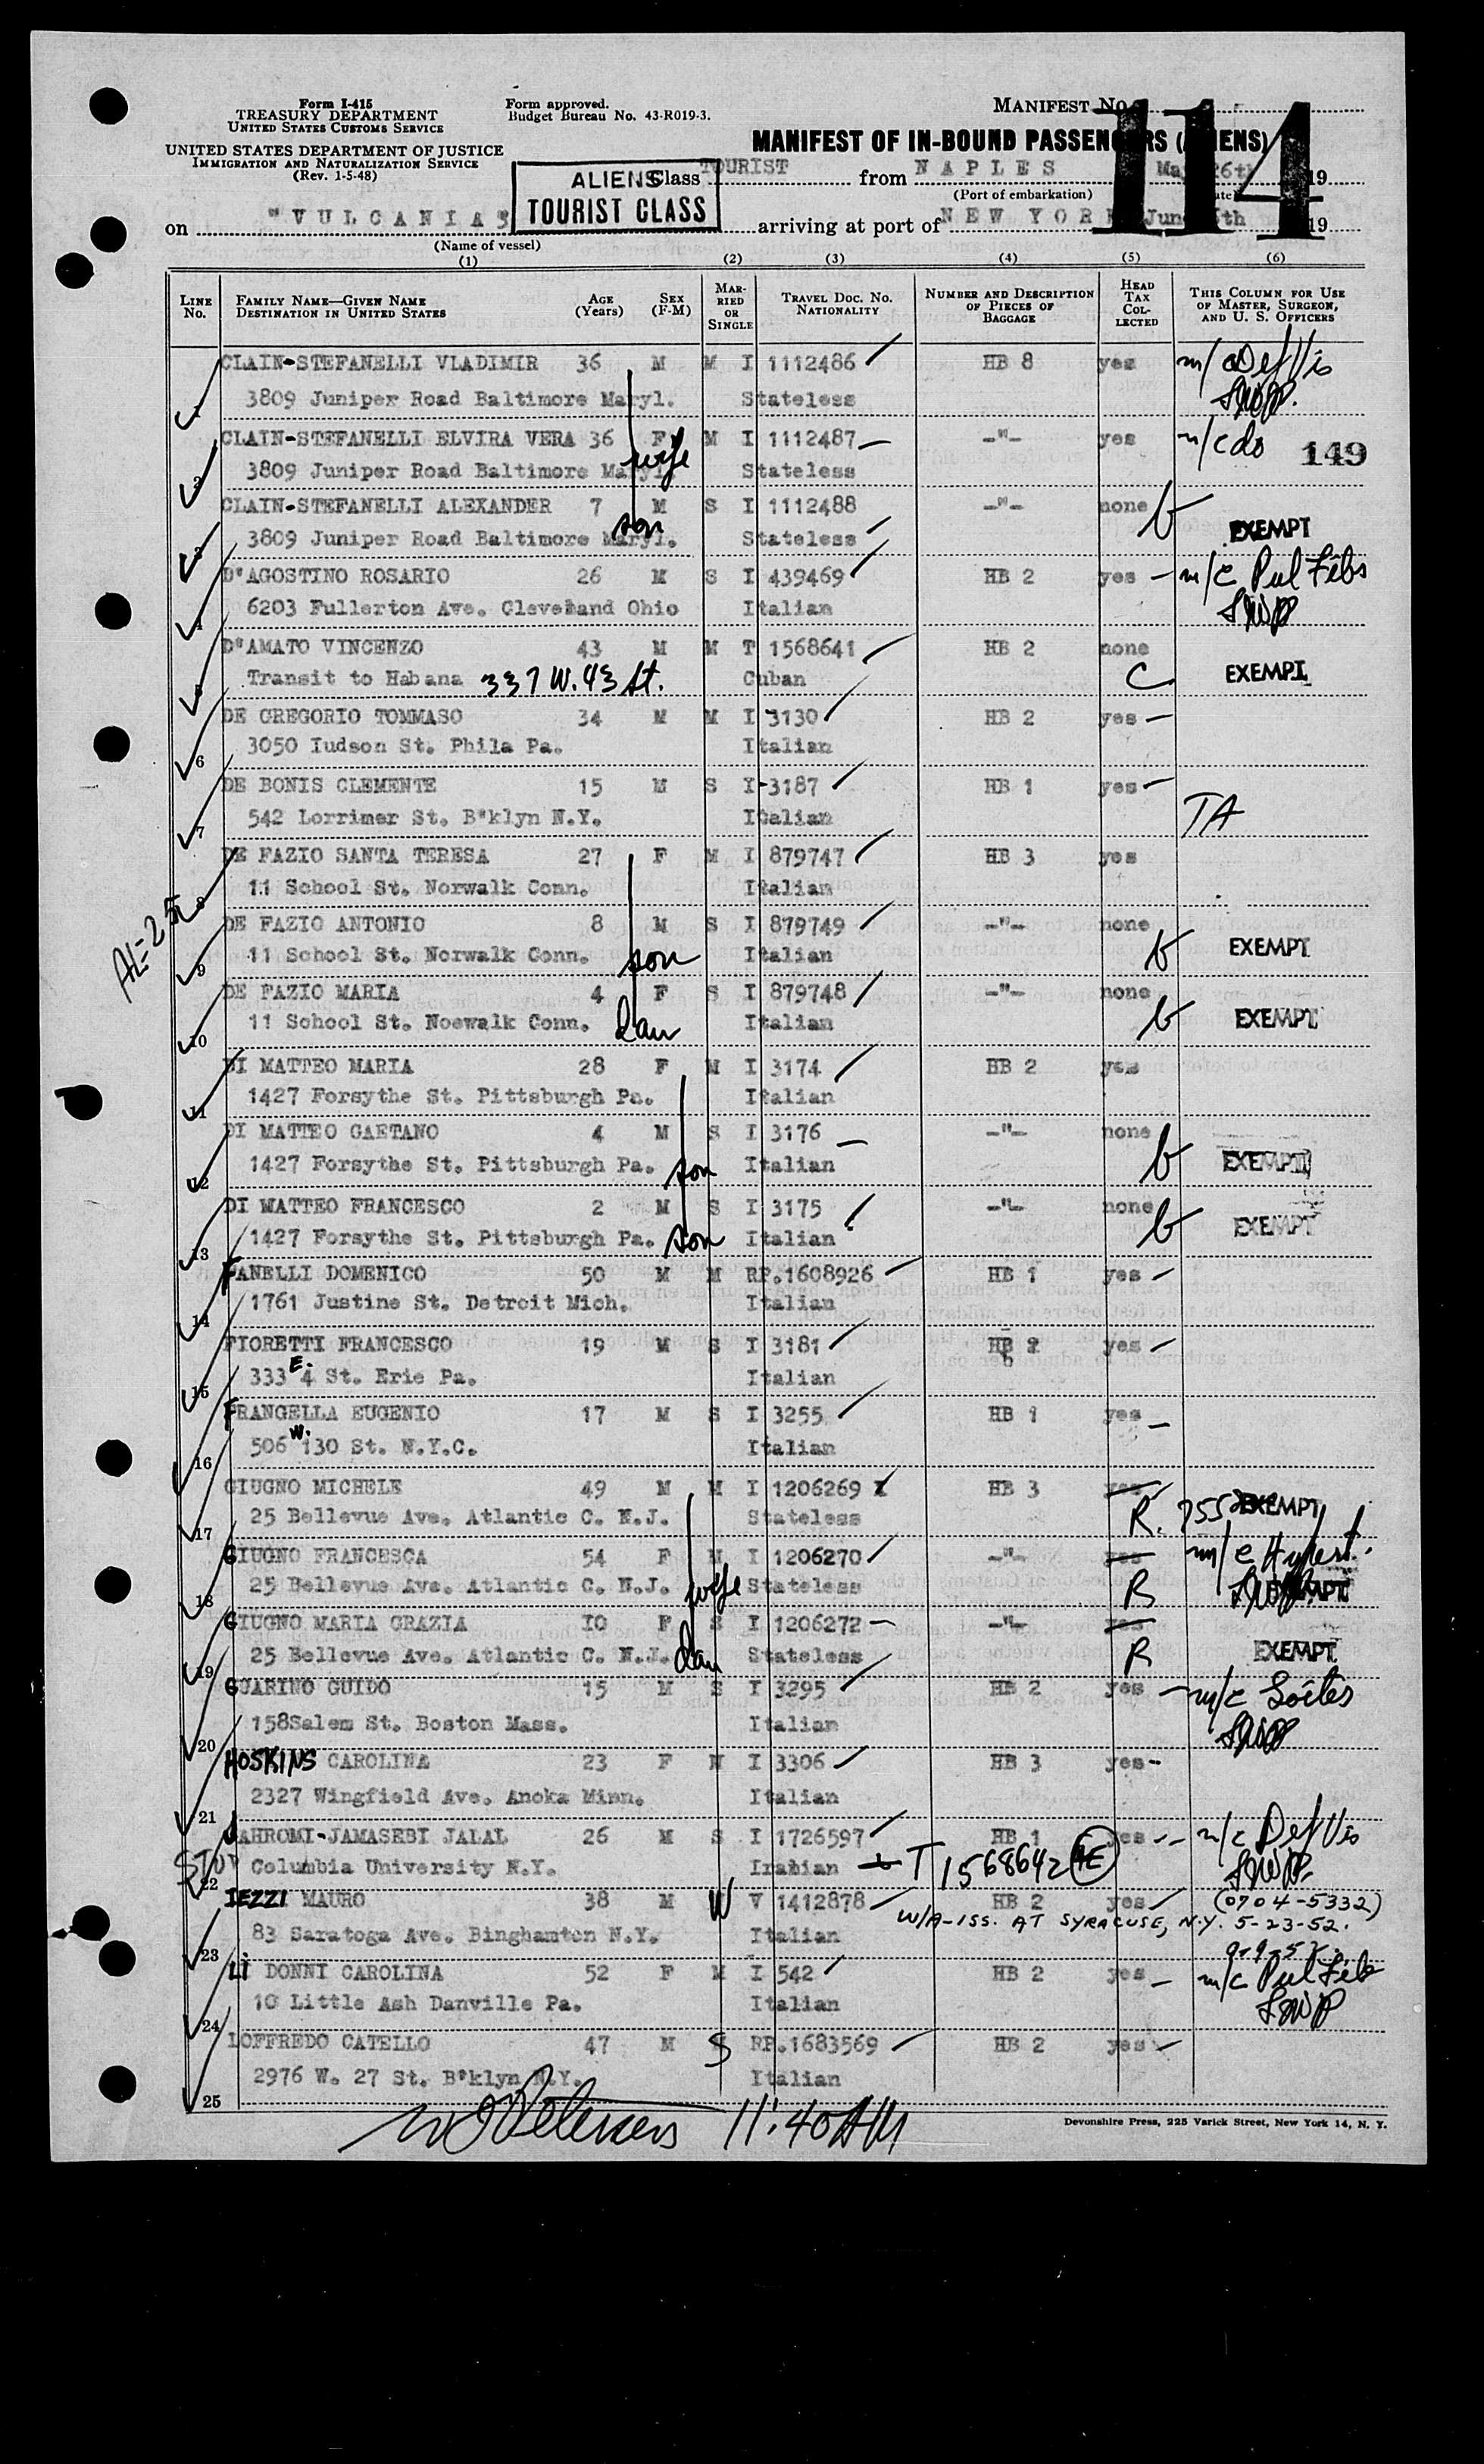 Form I-415
TREASURY DEPARTMENT
UNITED STATES CUSTOMS SERVICE
UNITED STATES DEPARTMENT OF JUSTICE
IMMIGRATION AND NATURALIZATION SERVICE
(Rev. 1-5-48)
Form approved.
Budget Bureau No. 43-R019-3.
MANIFEST No.
114
MANIFEST OF IN-BOUND PASSENGERS (ALIENS)
ALIENS
TOURIST CLASS
Class TOURIST from NAPLES 26th 19
(Port of embarkation)
on "VULCANIA" arriving at port of NEW YORK June 19
(Name of vessel)
(1) (2) (3) (4) (5) (6)
LINE No. FAMILY NAME—GIVEN NAME DESTINATION IN UNITED STATES AGE (Years) SEX (F-M) MARRIED OR SINGLE TRAVEL DOC. NO. NATIONALITY NUMBER AND DESCRIPTION OF PIECES OF BAGGAGE HEAD TAX COLLECTED THIS COLUMN FOR USE OF MASTER, SURGEON, AND U. S. OFFICERS
CLAIN-STEFANELLI VLADIMIR 36 M M I 1112486 HB 8 yes m/c Def Vis
1 3809 Juniper Road Baltimore Maryl. Stateless
CLAIN-STEFANELLI ELVIRA VERA 36 F M I 1112487 -"- yes m/c do 149
2 3809 Juniper Road Baltimore Maryl. wife Stateless
CLAIN-STEFANELLI ALEXANDER 7 M S I 1112488 -"- none b EXEMPT
3 3809 Juniper Road Baltimore Maryl. son Stateless
D'AGOSTINO ROSARIO 26 M S I 439469 HB 2 yes m/c Pul Fibs
4 6203 Fullerton Ave. Cleveland Ohio Italian
D'AMATO VINCENZO 43 M M T 1568641 HB 2 none
5 Transit to Habana 337 W. 43 St. Cuban C EXEMPT
DE GREGORIO TOMMASO 34 M M I 3130 HB 2 yes
6 3050 Iudson St. Phila Pa. Italian
DE BONIS CLEMENTE 15 M S I-3187 HB 1 yes
7 542 Lorrimer St. B'klyn N.Y. Italian TA
DE FAZIO SANTA TERESA 27 F M I 879747 HB 3 yes
8 11 School St. Norwalk Conn. Italian
DE FAZIO ANTONIO 8 M S I 879749 -"- none
9 11 School St. Norwalk Conn. son Italian b EXEMPT
DE FAZIO MARIA 4 F S I 879748 -"- none
10 11 School St. Noewalk Conn. dau Italian b EXEMPT
DI MATTEO MARIA 28 F M I 3174 HB 2 yes
11 1427 Forsythe St. Pittsburgh Pa. Italian
DI MATTEO GAETANO 4 M S I 3176 -"- none
12 1427 Forsythe St. Pittsburgh Pa. son Italian b EXEMPT
DI MATTEO FRANCESCO 2 M S I 3175 -"- none
13 1427 Forsythe St. Pittsburgh Pa. son Italian b EXEMPT
FANELLI DOMENICO 50 M M RP.1608926 HB 1 yes
14 1761 Justine St. Detroit Mich. Italian
FIORETTI FRANCESCO 19 M S I 3181 HB 2 yes
15 333 E. 4 St. Erie Pa. Italian
FRANGELLA EUGENIO 17 M S I 3255 HB 1 yes
16 506 W. 130 St. N.Y.C. Italian
GIUGNO MICHELE 49 M M I 1206269 HB 3 yes
17 25 Bellevue Ave. Atlantic C. N.J. Stateless R. EXEMPT
GIUGNO FRANCESCA 54 F M I 1206270 -"- yes m/c Hypert.
18 25 Bellevue Ave. Atlantic C. N.J. wife Stateless R EXEMPT
GIUGNO MARIA GRAZIA 10 F S I 1206272 -"- yes
19 25 Bellevue Ave. Atlantic C. N.J. dau Stateless R EXEMPT
GUARINO GUIDO 15 M S I 3295 HB 2 yes m/c
20 158Salem St. Boston Mass. Italian
HOSKINS CAROLINA 23 F M I 3306 HB 3 yes
21 2327 Wingfield Ave. Anoka Minn. Italian
JAHROMI-JAMASEBI JALAL 26 M S I 1726597 HB 1 yes m/c Def Vis
22 Columbia University N.Y. Iranian T 1568642 4E
IEZZI MAURO 38 M W V 1412878 HB 2 yes (0704-5332)
W/A-ISS. AT SYRACUSE, N.Y. 5-23-52.
23 83 Saratoga Ave. Binghamton N.Y. Italian
LI DONNI CAROLINA 52 F M I 542 HB 2 yes m/c Pul Fib
24 10 Little Ash Danville Pa. Italian
LOFFREDO CATELLO 47 M S RP.1683569 HB 2 yes
25 2976 W. 27 St. B'klyn N.Y. Italian
11:40 AM
Devonshire Press, 225 Varick Street, New York 14, N. Y.